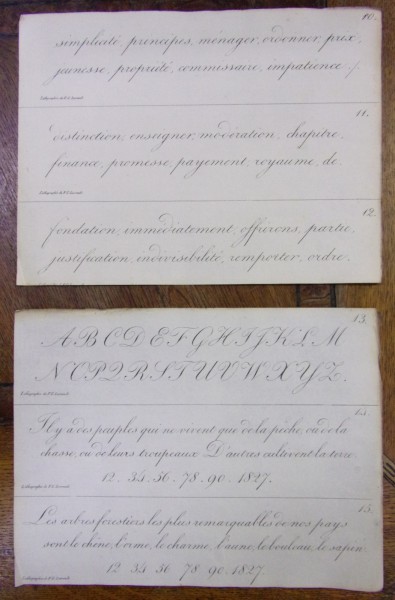 10.
simplicité, principes, ménager, ordonner, prix,
jeunesse, propriété, commissaire, impatience
11.
distinction, enseigner, modération, chapitre,
finance, promesse, payement, royaume, de.
12.
fondation, immédiatement, offrirons, partie,
justification, indivisibilité, remporter, ordre.
13.
A B C D E F G H I J K L M
N O P Q R S T U V W X Y Z.
14.
Il y a des peuples qui ne vivent que de la pêche, ou de la
chasse, ou de leurs troupeaux. D'autres cultivent la terre.
12. 34. 56. 78. 90. 1827.
15.
Les arbres forestiers les plus remarquables de nos pays
sont le chêne, l'orme, le charme, l'aune, le bouleau, le sapin.
12 34 56 78 90 1827